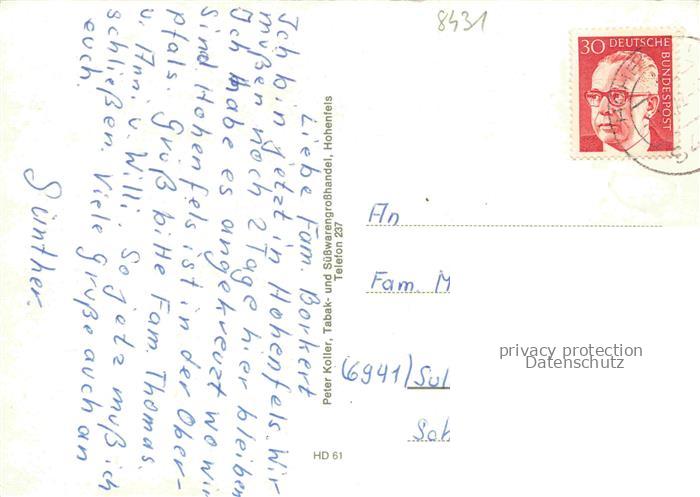 8431
30 DEUTSCHE
BUNDESPOST
Liebe Fam. Borkert
Ich bin jetzt in Hohenfels. Wir
müßen noch 2 Tage hier bleiben
Ich habe es angekreuzt wo wir
sind. Hohenfels ist in der Ober-
pfals. Grüß bitte Fam. Thomas.
u. Anni. u. Willi. So jetz muß ich
schließen. Viele Grüße auch an
euch.
Günther.
Peter Koller, Tabak- und Süßwarengroßhandel, Hohenfels
Telefon 237
An
Fam. M
(6941) Sul
HD 61
privacy protection
Datenschutz